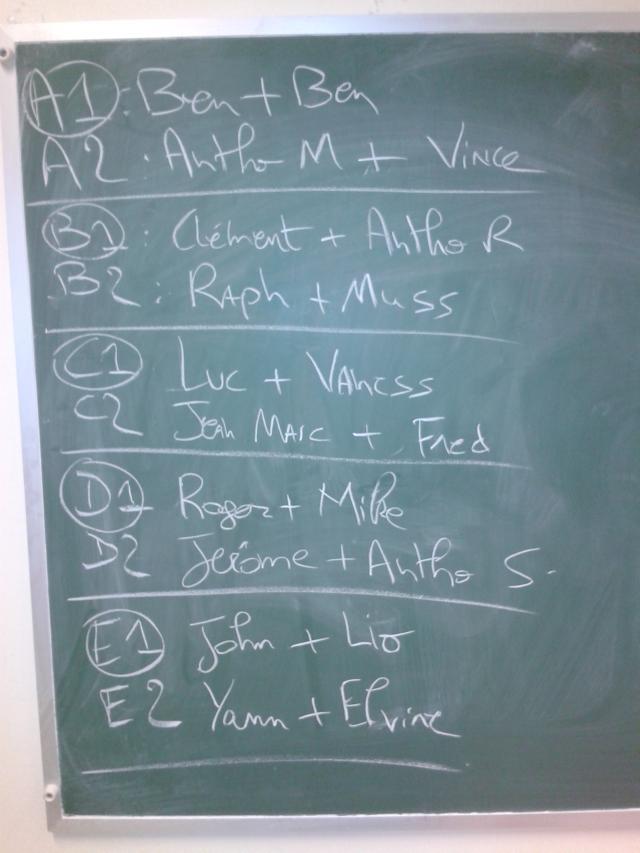 A1: Ben + Ben
A2: Antho M + Vince
B1: Clément + Antho R
B2: Raph + Muss
C1 Luc + Vaness
C2 Jean Marc + Fred
D1 Roger + Mike
D2 Jerôme + Antho S.
E1 John + Lio
E2 Yann + Elvine